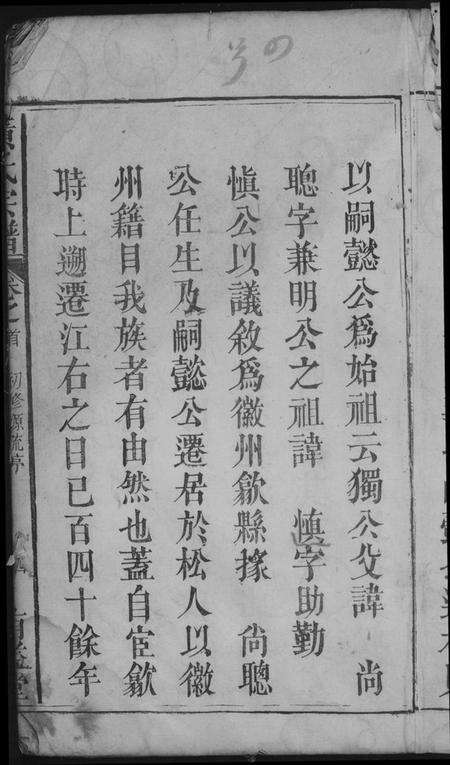 以嗣懿公爲始祖云獨公父諱 尚
聰字兼明公之祖諱 慎字助勤
慎公以議敘爲徽州歙縣掾 尙聰
公任生及嗣懿公遷居於松人以徽
州籍目我族者有由然也蓋自宦歙
時上遡遷江右之日已百四十餘年
氏宗譜
卷之首 初修源流序